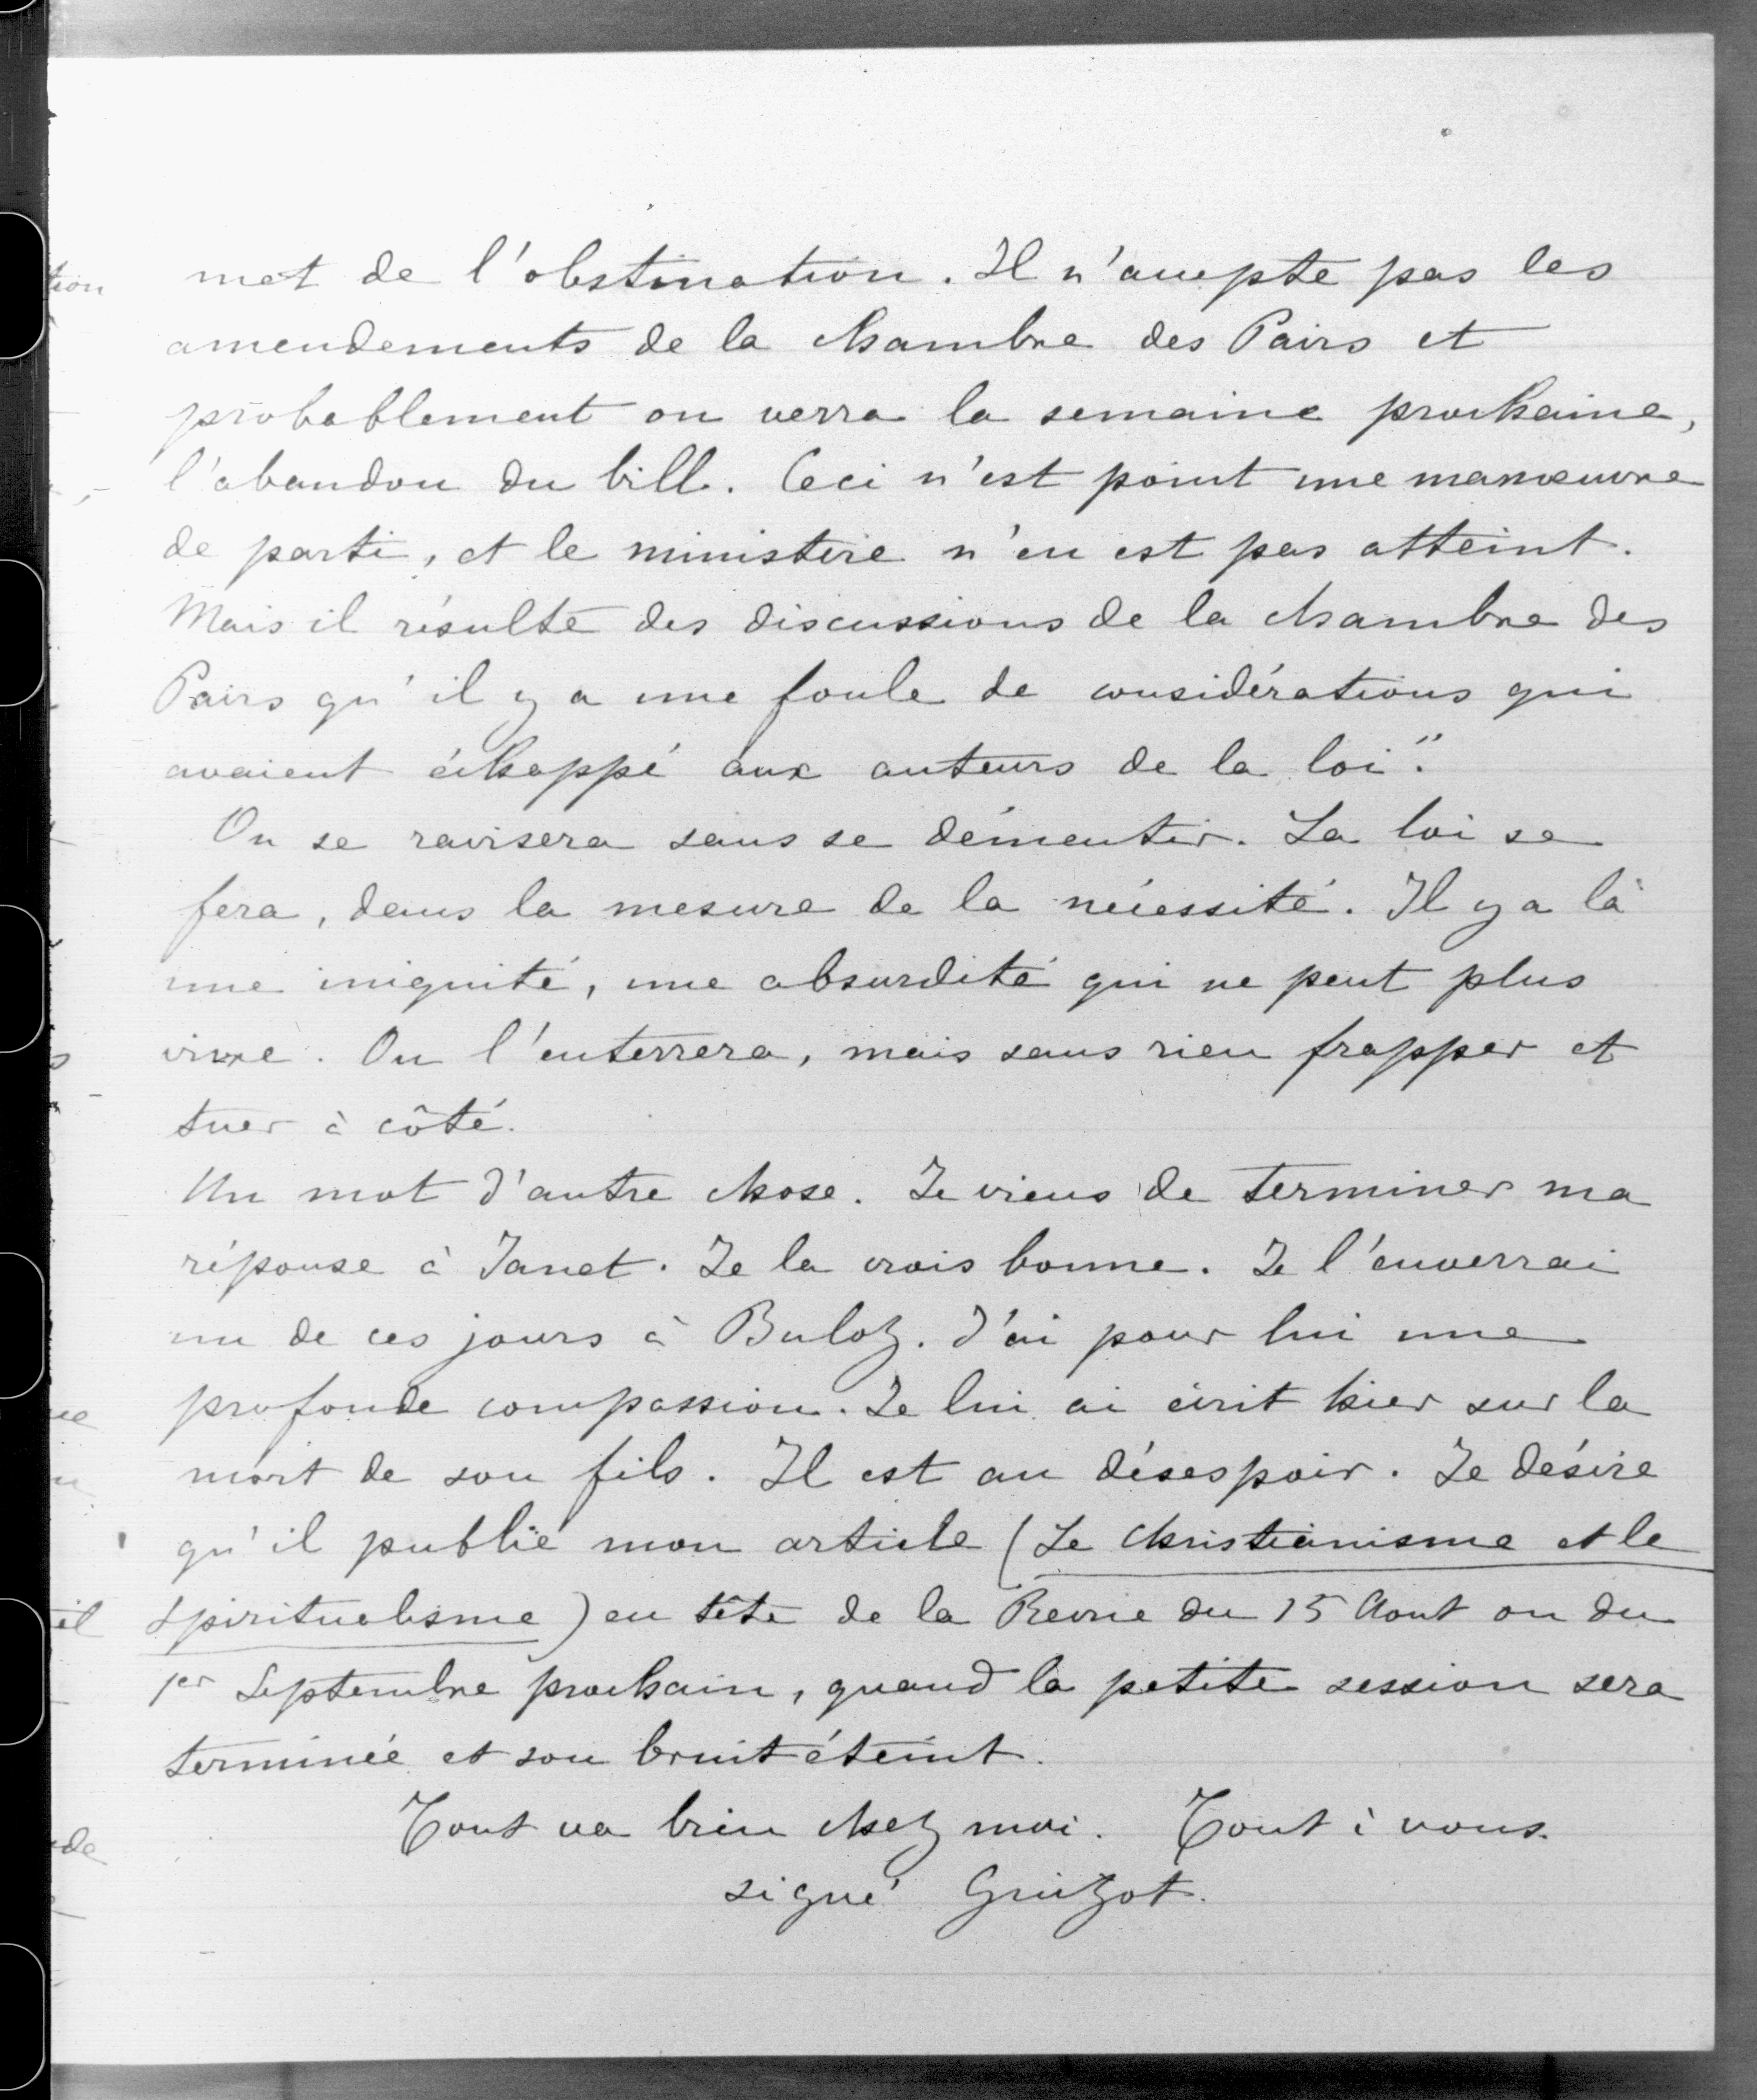 met de l'obstination. Il n'accepte pas les
amendements de la chambre des Pairs et
probablement on verra la semaine prochaine,
l'abandon du bill. Ceci n'est point une manœuvre
de parti, et le ministère n'en est pas atteint.
Mais il résulte des discussions de la chambre des
Pairs qu'il y a une foule de considérations qui
avaient échappé aux auteurs de la loi".
On se ravisera sans se démentir. La loi se
fera, dans la mesure de la nécessité. Il y a là
une iniquité, une absurdité qui ne peut plus
vivre. On l'enterrera, mais sans rien frapper et
tuer à côté.
Un mot d'autre chose. Je viens de terminer ma
réponse à Janet. Je la crois bonne. Je l'enverrai
un de ces jours à Buloz. J'ai pour lui une
profonde compassion. Je lui ai écrit hier sur la
mort de son fils. Il est au désespoir. Je désire
qu'il publie mon article (Le Christianisme et le
Spiritualisme) en tête de la Revue du 15 Aout ou du
1er Septembre prochain, quand la petite session sera
terminée et son bruit éteint.
Tout va bien chez moi. Tout à vous.
signé Guizot.